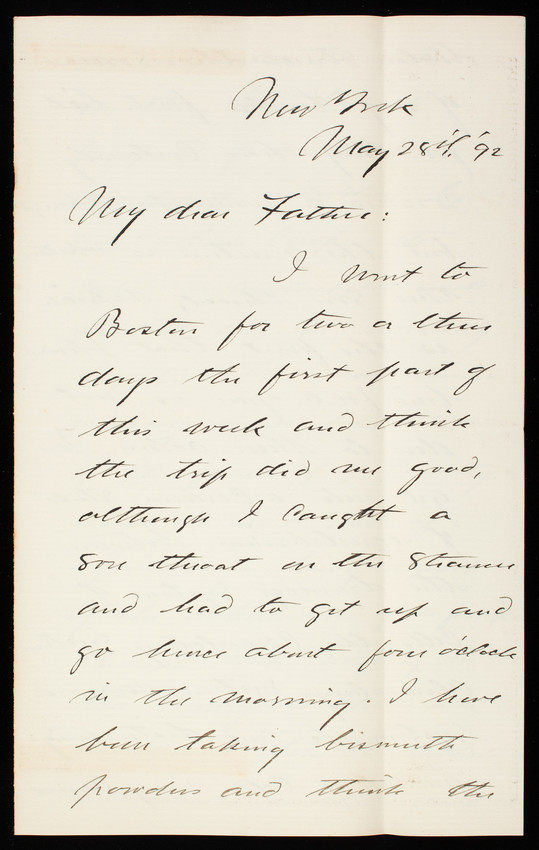 New York
May 28th. '92
My dear Father:
I went to
Boston for two or three
days the first part of
this week and think
the trip did me good,
although I caught a
sore throat on the steamer
and had to get up and
go hence about four o'clock
in the morning. I have
been taking bismuth
powders and think the